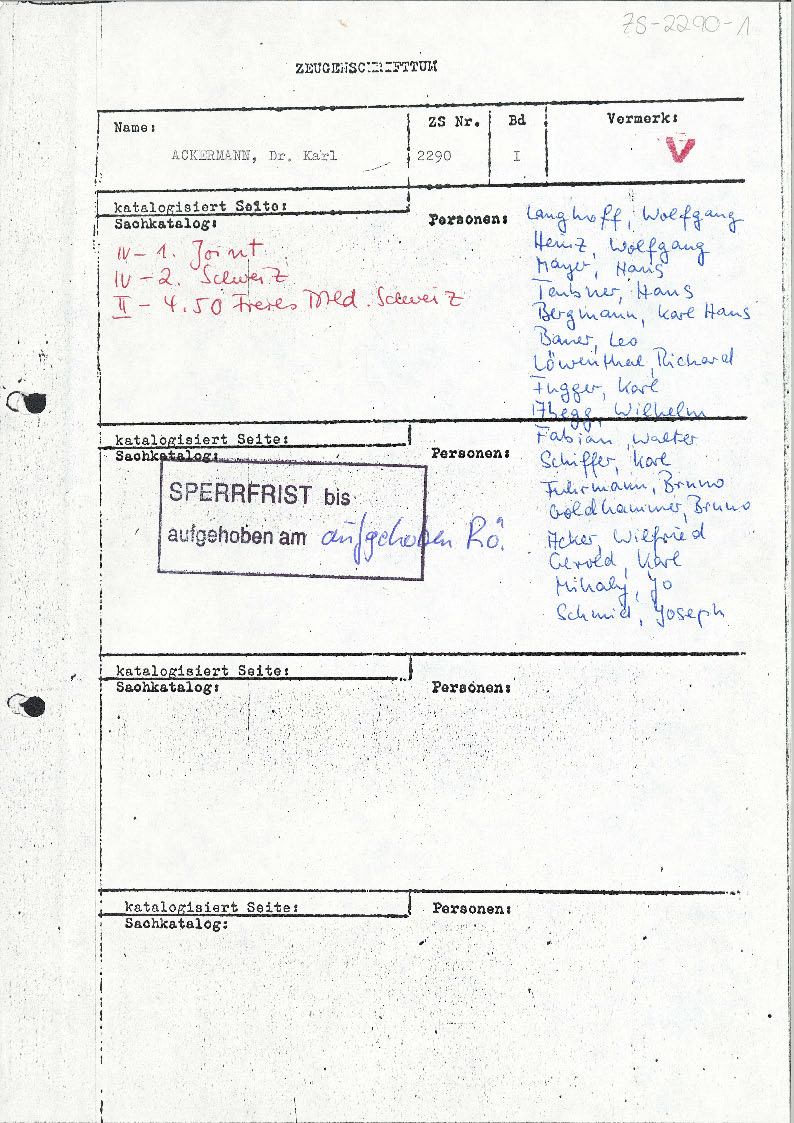 ZS-2290-1
ZEUGENSCHRIFTTUM
Name:
ACKERMANN, Dr. Karl
ZS Nr.
2290
Bd
I
Vermerk:
V
katalogisiert Seite:
Sachkatalog:
IV - 1. Joint
IV - 2. Schweiz
II - 4.50 Freies Dtld. Schweiz
Personen:
Langhoff, Wolfgang
Heinz, Wolfgang
Mayer, Hans
Teubner, Hans
Bergmann, Karl Hans
Bauer, Leo
Löwenthal, Richard
Fugger, Karl
Abegg, Wilhelm
Fabian, Walter
Schiffer, Karl
Fuhrmann, Bruno
Goldhammer, Bruno
Acker, Wilfried
Gerold, Karl
Mihaly, Jo
Schmid, Joseph
katalogisiert Seite:
Sachkatalog:
Personen:
SPERRFRIST bis
aufgehoben am aufgehoben Rö.
katalogisiert Seite:
Sachkatalog:
Personen:
katalogisiert Seite:
Sachkatalog:
Personen: